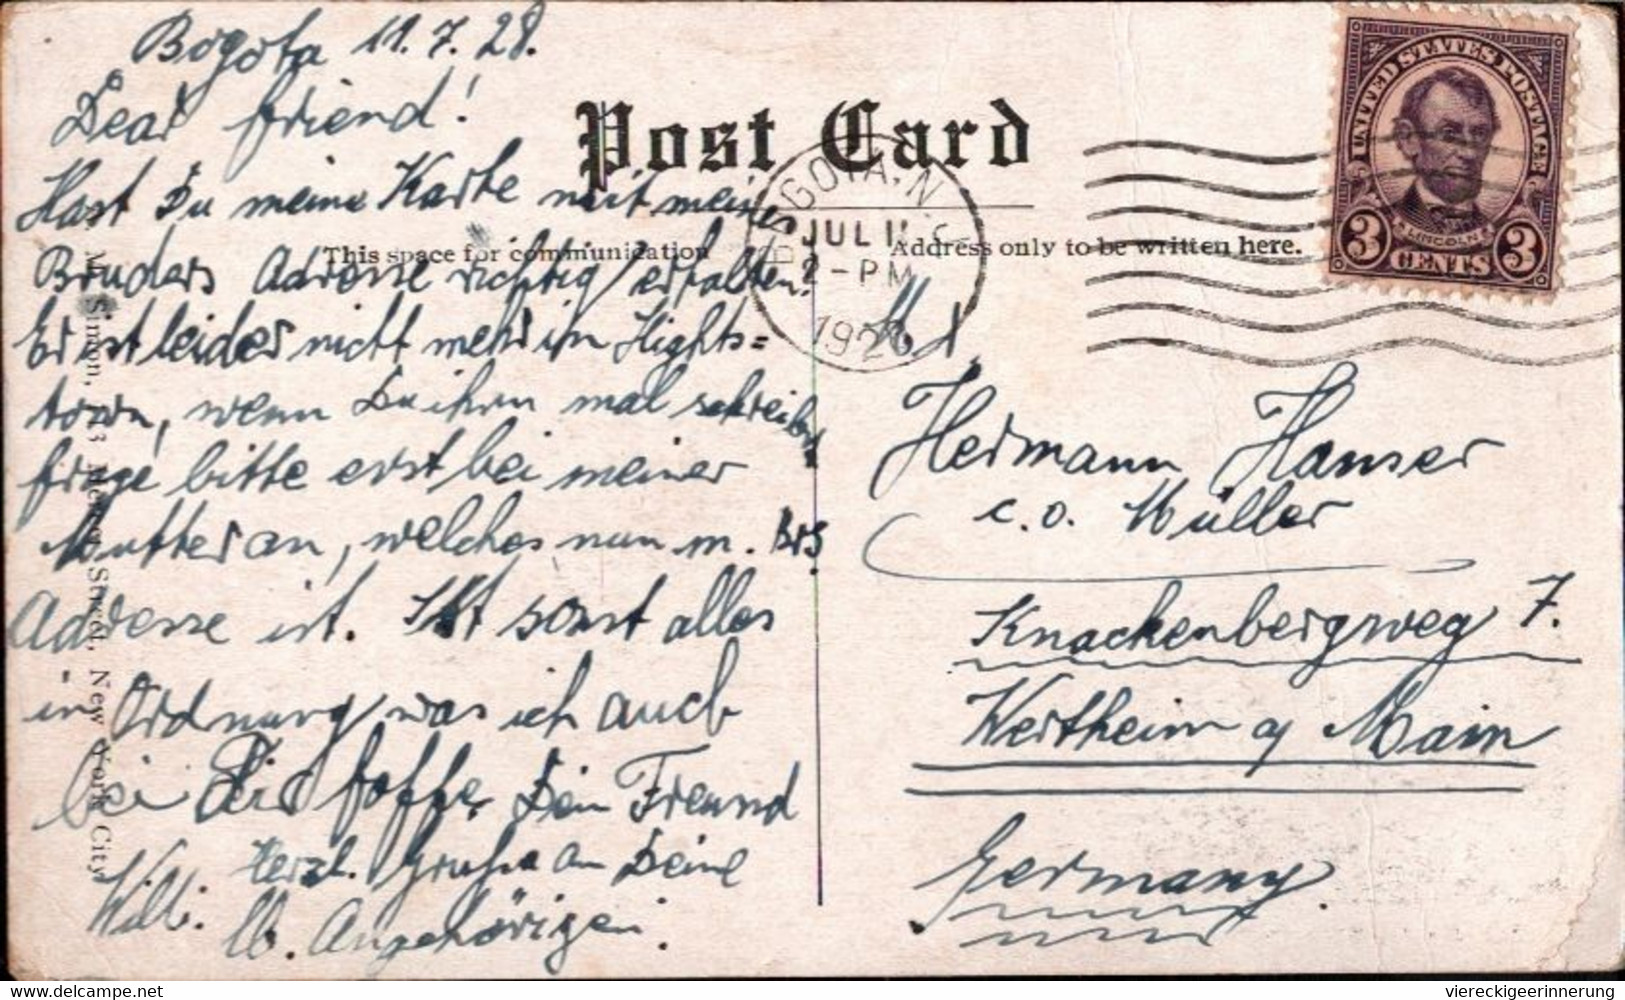 Bogota 11. 7. 28.
Dear friend!
Hast Du meine Karte mit meines
Bruders Adresse richtig erhalten?
Er ist leider nicht mehr in Hights=
town, wenn Du ihm mal schreibst
frage bitte erst bei meiner
Mutter an, welches nun m. Brs.
Adresse ist. Ist sonst alles
in Ordnung, was ich auch
bei Dir hoffe. Dein Freund
Willi. Herzl. Grüße an Deine
lb. Angehörigen.
Post Card
This space for communication
Address only to be written here.
Simon, Street, New York City
BOGOTA, N.
JUL 11
2-PM
1928
UNITED STATES POSTAGE
LINCOLN
3 CENTS 3
Hermann Hauser
c. o. Müller
Knackenbergweg 7.
Wertheim a/ Main
Germany.
viereckigeerinnerung
delcampe.net